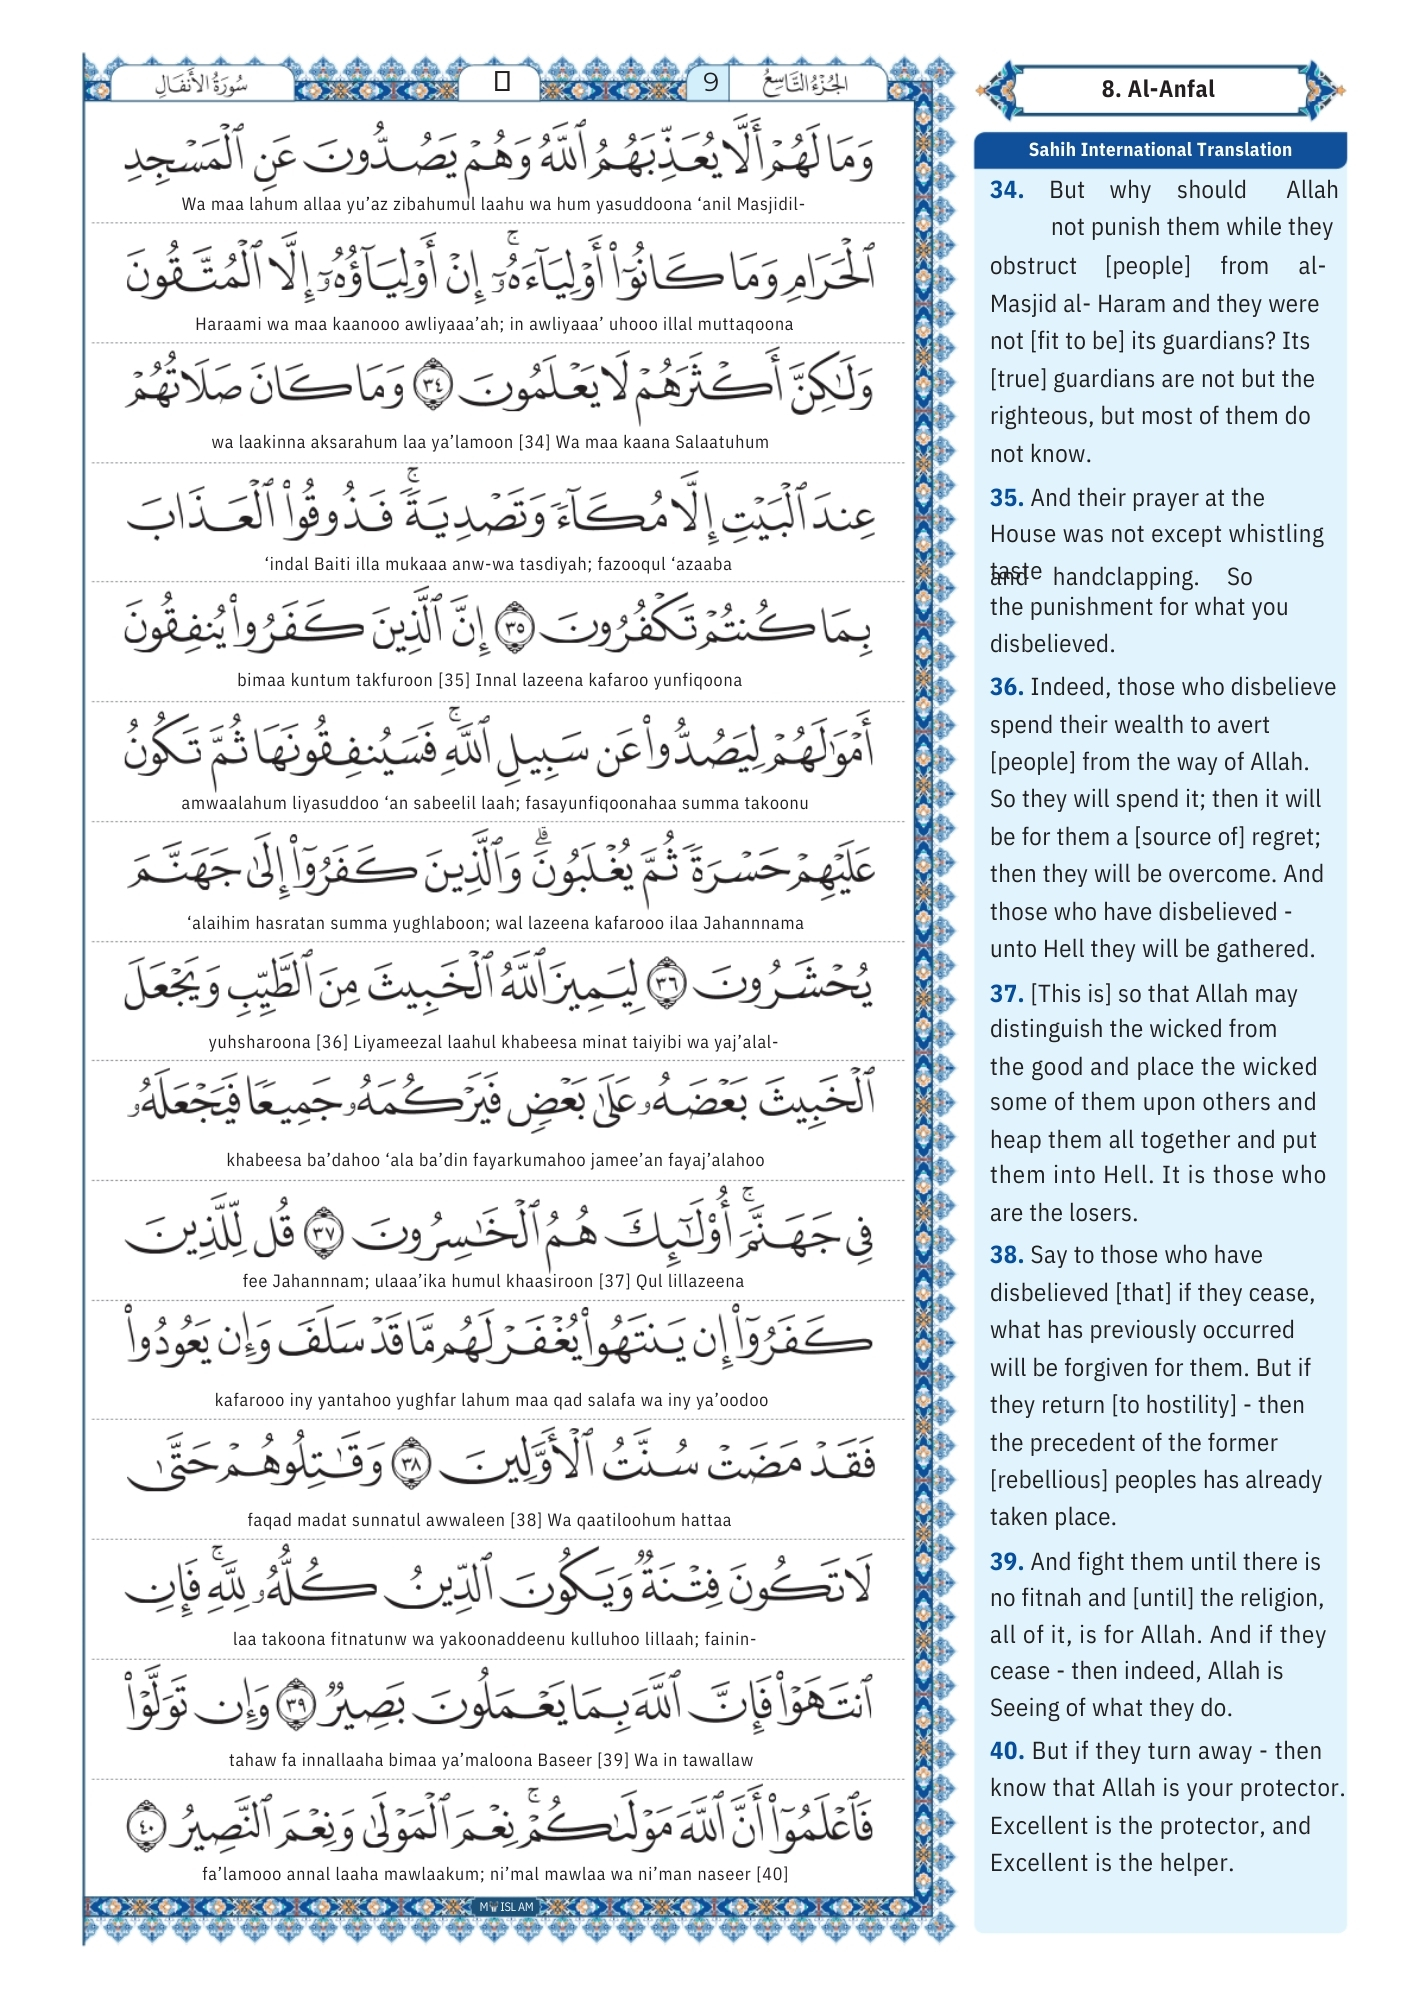 سُورَةُ الأَنفَال
9
الجُزْءُ التَّاسِعُ
وَمَا لَهُمْ أَلَّا يُعَذِّبَهُمُ ٱللَّهُ وَهُمْ يَصُدُّونَ عَنِ ٱلْمَسْجِدِ
Wa maa lahum allaa yu’az zibahumul laahu wa hum yasuddoona ‘anil Masjidil-
ٱلْحَرَامِ وَمَا كَانُوٓا۟ أَوْلِيَآءَهُۥٓ ۚ إِنْ أَوْلِيَآؤُهُۥٓ إِلَّا ٱلْمُتَّقُونَ
Haraami wa maa kaanooo awliyaaa’ah; in awliyaaa’ uhooo illal muttaqoona
وَلَٰكِنَّ أَكْثَرَهُمْ لَا يَعْلَمُونَ ٣٤ وَمَا كَانَ صَلَاتُهُمْ
wa laakinna aksarahum laa ya’lamoon [34] Wa maa kaana Salaatuhum
عِندَ ٱلْبَيْتِ إِلَّا مُكَآءً وَتَصْدِيَةً ۚ فَذُوقُوا۟ ٱلْعَذَابَ
‘indal Baiti illa mukaaa anw-wa tasdiyah; fazooqul ‘azaaba
بِمَا كُنتُمْ تَكْفُرُونَ ٣٥ إِنَّ ٱلَّذِينَ كَفَرُوا۟ يُنفِقُونَ
bimaa kuntum takfuroon [35] Innal lazeena kafaroo yunfiqoona
أَمْوَٰلَهُمْ لِيَصُدُّوا۟ عَن سَبِيلِ ٱللَّهِ ۚ فَسَيُنفِقُونَهَا ثُمَّ تَكُونُ
amwaalahum liyasuddoo ‘an sabeelil laah; fasayunfiqoonahaa summa takoonu
عَلَيْهِمْ حَسْرَةً ثُمَّ يُغْلَبُونَ ۗ وَٱلَّذِينَ كَفَرُوٓا۟ إِلَىٰ جَهَنَّمَ
‘alaihim hasratan summa yughlaboon; wal lazeena kafarooo ilaa Jahannnama
يُحْشَرُونَ ٣٦ لِيَمِيزَ ٱللَّهُ ٱلْخَبِيثَ مِنَ ٱلطَّيِّبِ وَيَجْعَلَ
yuhsharoona [36] Liyameezal laahul khabeesa minat taiyibi wa yaj’alal-
ٱلْخَبِيثَ بَعْضَهُۥ عَلَىٰ بَعْضٍ فَيَرْكُمَهُۥ جَمِيعًا فَيَجْعَلَهُۥ
khabeesa ba’dahoo ‘ala ba’din fayarkumahoo jamee’an fayaj’alahoo
فِى جَهَنَّمَ ۚ أُو۟لَٰٓئِكَ هُمُ ٱلْخَٰسِرُونَ ٣٧ قُل لِّلَّذِينَ
fee Jahannnam; ulaaa’ika humul khaasiroon [37] Qul lillazeena
كَفَرُوٓا۟ إِن يَنتَهُوا۟ يُغْفَرْ لَهُم مَّا قَدْ سَلَفَ وَإِن يَعُودُوا۟
kafarooo iny yantahoo yughfar lahum maa qad salafa wa iny ya’oodoo
فَقَدْ مَضَتْ سُنَّتُ ٱلْأَوَّلِينَ ٣٨ وَقَٰتِلُوهُمْ حَتَّىٰ
faqad madat sunnatul awwaleen [38] Wa qaatiloohum hattaa
لَا تَكُونَ فِتْنَةٌ وَيَكُونَ ٱلدِّينُ كُلُّهُۥ لِلَّهِ ۚ فَإِنِ
laa takoona fitnatunw wa yakoonaddeenu kulluhoo lillaah; fainin-
ٱنتَهَوْا۟ فَإِنَّ ٱللَّهَ بِمَا يَعْمَلُونَ بَصِيرٌ ٣٩ وَإِن تَوَلَّوْا۟
tahaw fa innallaaha bimaa ya’maloona Baseer [39] Wa in tawallaw
فَٱعْلَمُوٓا۟ أَنَّ ٱللَّهَ مَوْلَىٰكُمْ ۚ نِعْمَ ٱلْمَوْلَىٰ وَنِعْمَ ٱلنَّصِيرُ ٤٠
fa’lamooo annal laaha mawlaakum; ni’mal mawlaa wa ni’man naseer [40]
8. Al-Anfal
Sahih International Translation
34. But why should Allah
not punish them while they
obstruct [people] from al-
Masjid al- Haram and they were
not [fit to be] its guardians? Its
[true] guardians are not but the
righteous, but most of them do
not know.
35. And their prayer at the
House was not except whistling
taste
and handclapping. So
the punishment for what you
disbelieved.
36. Indeed, those who disbelieve
spend their wealth to avert
[people] from the way of Allah.
So they will spend it; then it will
be for them a [source of] regret;
then they will be overcome. And
those who have disbelieved -
unto Hell they will be gathered.
37. [This is] so that Allah may
distinguish the wicked from
the good and place the wicked
some of them upon others and
heap them all together and put
them into Hell. It is those who
are the losers.
38. Say to those who have
disbelieved [that] if they cease,
what has previously occurred
will be forgiven for them. But if
they return [to hostility] - then
the precedent of the former
[rebellious] peoples has already
taken place.
39. And fight them until there is
no fitnah and [until] the religion,
all of it, is for Allah. And if they
cease - then indeed, Allah is
Seeing of what they do.
40. But if they turn away - then
know that Allah is your protector.
Excellent is the protector, and
Excellent is the helper.